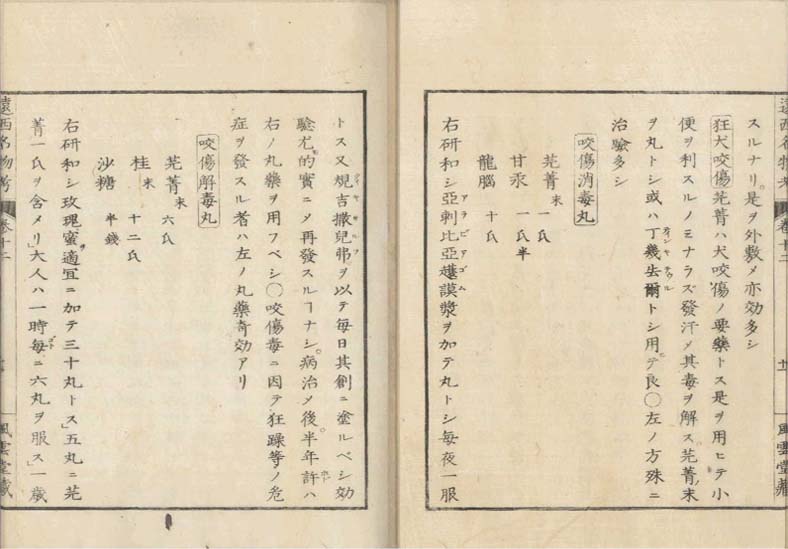 スルナリ。是ヲ外敷メ亦効多シ
狂犬咬傷 芫菁ハ犬咬傷ノ要藥トス是ヲ用ヒテ小
便ヲ利スルノミナラズ發汗メ其毒ヲ解ス芫菁ノ末
ヲ丸トシ或ハ丁幾去爾トシ用テ良〇左ノ方殊ニ
治驗多シ
咬傷消毒丸
芫菁末 一氏
甘汞 一氏半
龍腦 十氏
右研和シ亞剌比亞護謨漿ヲ加テ丸トシ毎夜一服
トス又規吉撒兒弗ヲ以テ毎日其創ニ塗ルベシ効
驗尤的實ニメ再發スルヿナシ。病治メ後。半年許ハ
右ノ丸藥ヲ用フベシ〇咬傷毒ニ因テ狂躁等ノ危
症ヲ發スル者ハ左ノ丸藥奇効アリ
咬傷解毒丸
芫菁末 六氏
桂末 十二氏
沙糖 半錢
右研和シ玫瑰蜜適宜ニ加テ三十丸トス」五丸ニ芫
菁一氏ヲ含メリ」大人ハ一時毎ニ六丸ヲ服ス」一歳
遠西名物考 卷十二
風雲堂藏